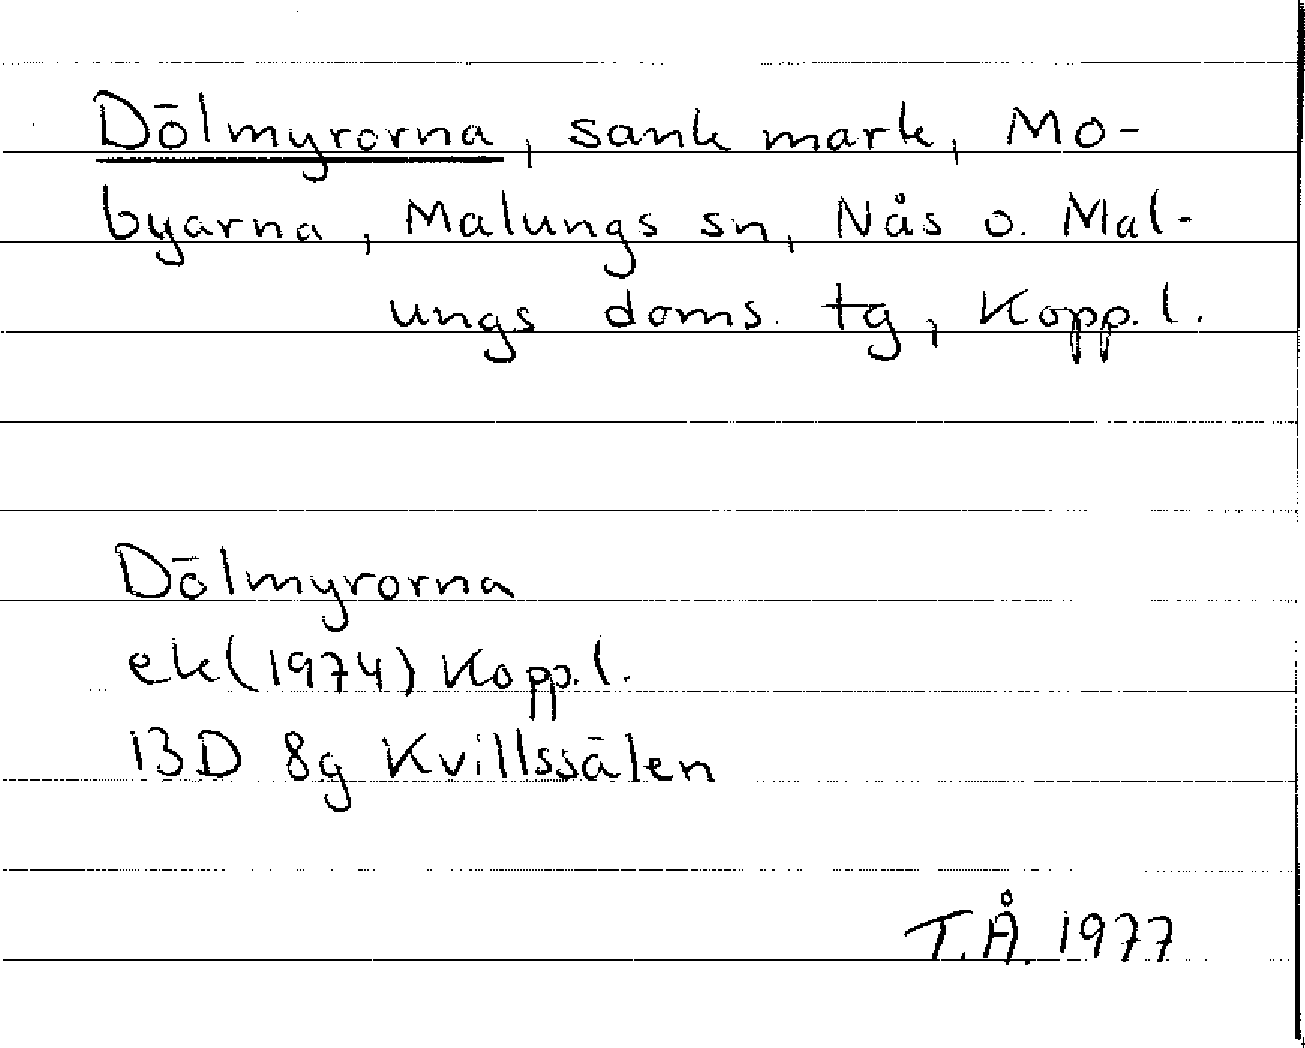 Dölmyrorna, sank mark, Mo-
byarna, Malungs sn, Nås o. Mal-
ungs doms. tg, Kopp. l.
Dölmyrorna
ek (1974) Kopp. l.
13D 8g Kvillssälen
T.Å. 1977